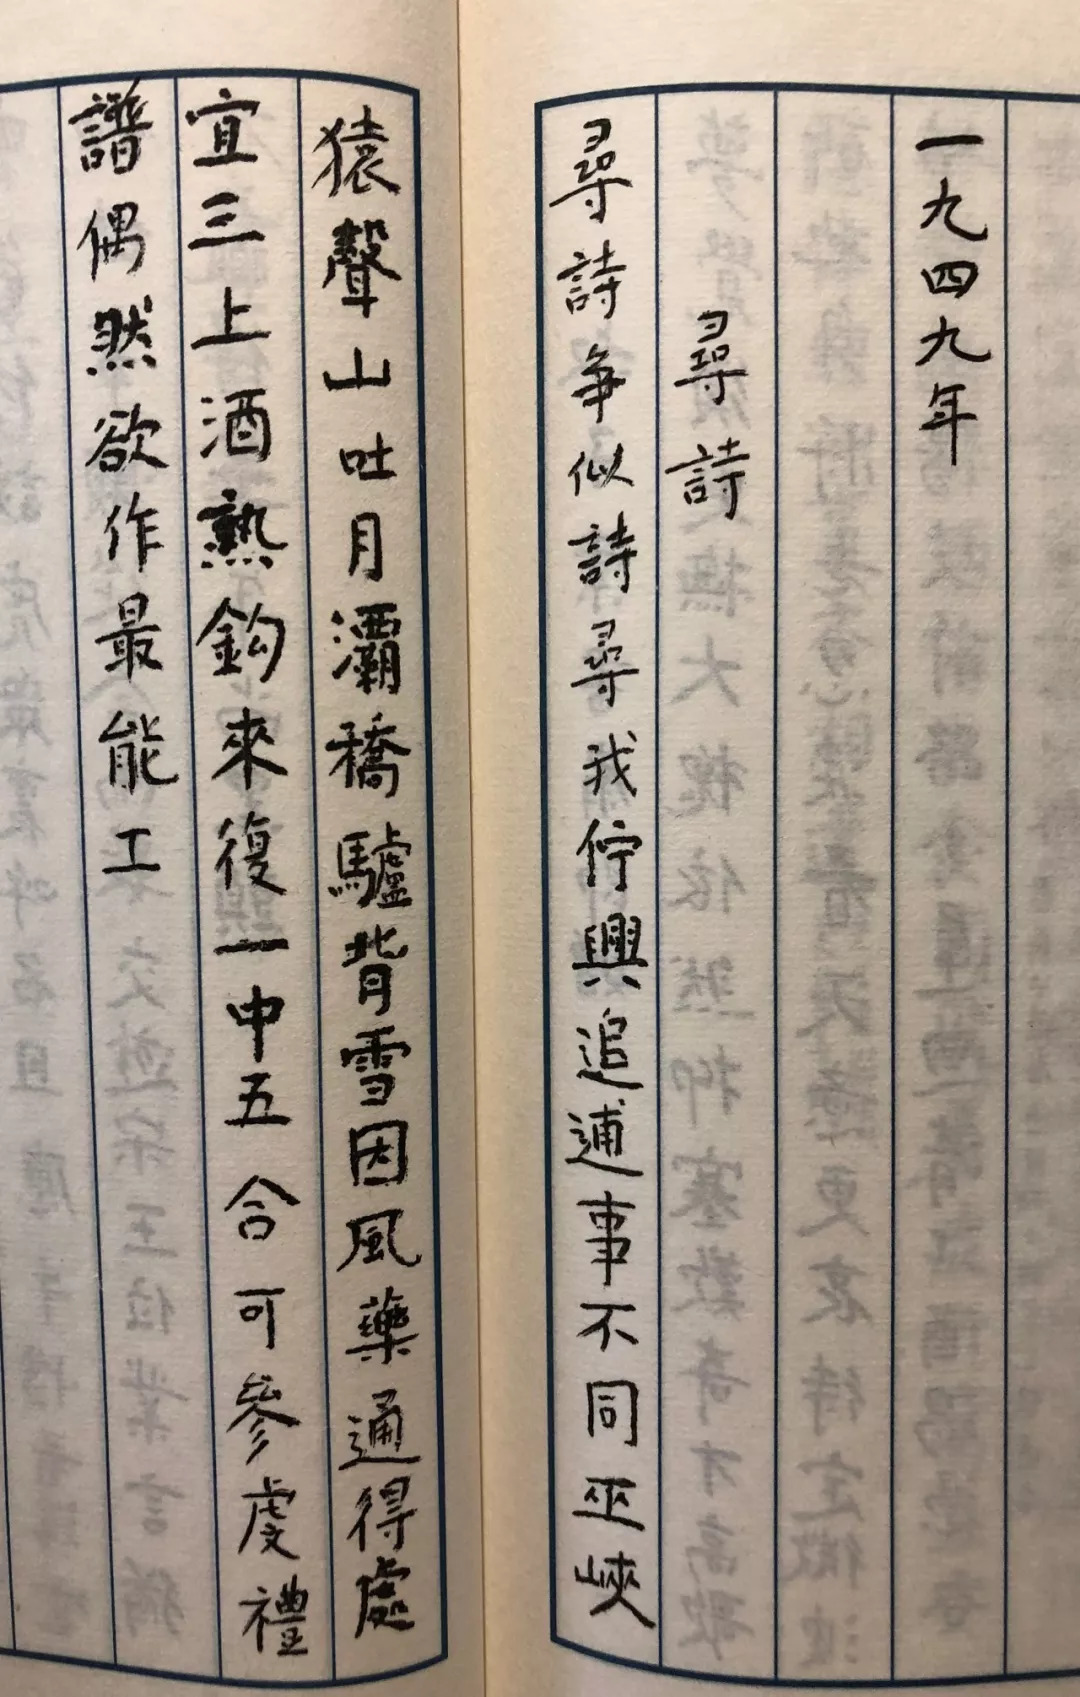 一九四九年
尋詩
尋詩爭似詩尋我佇興追逋事不同巫峽
猿聲山吐月灞橋驢背雪因風藥通得處
宜三上酒熟鈎來復一中五合可參虔禮
譜偶然欲作最能工